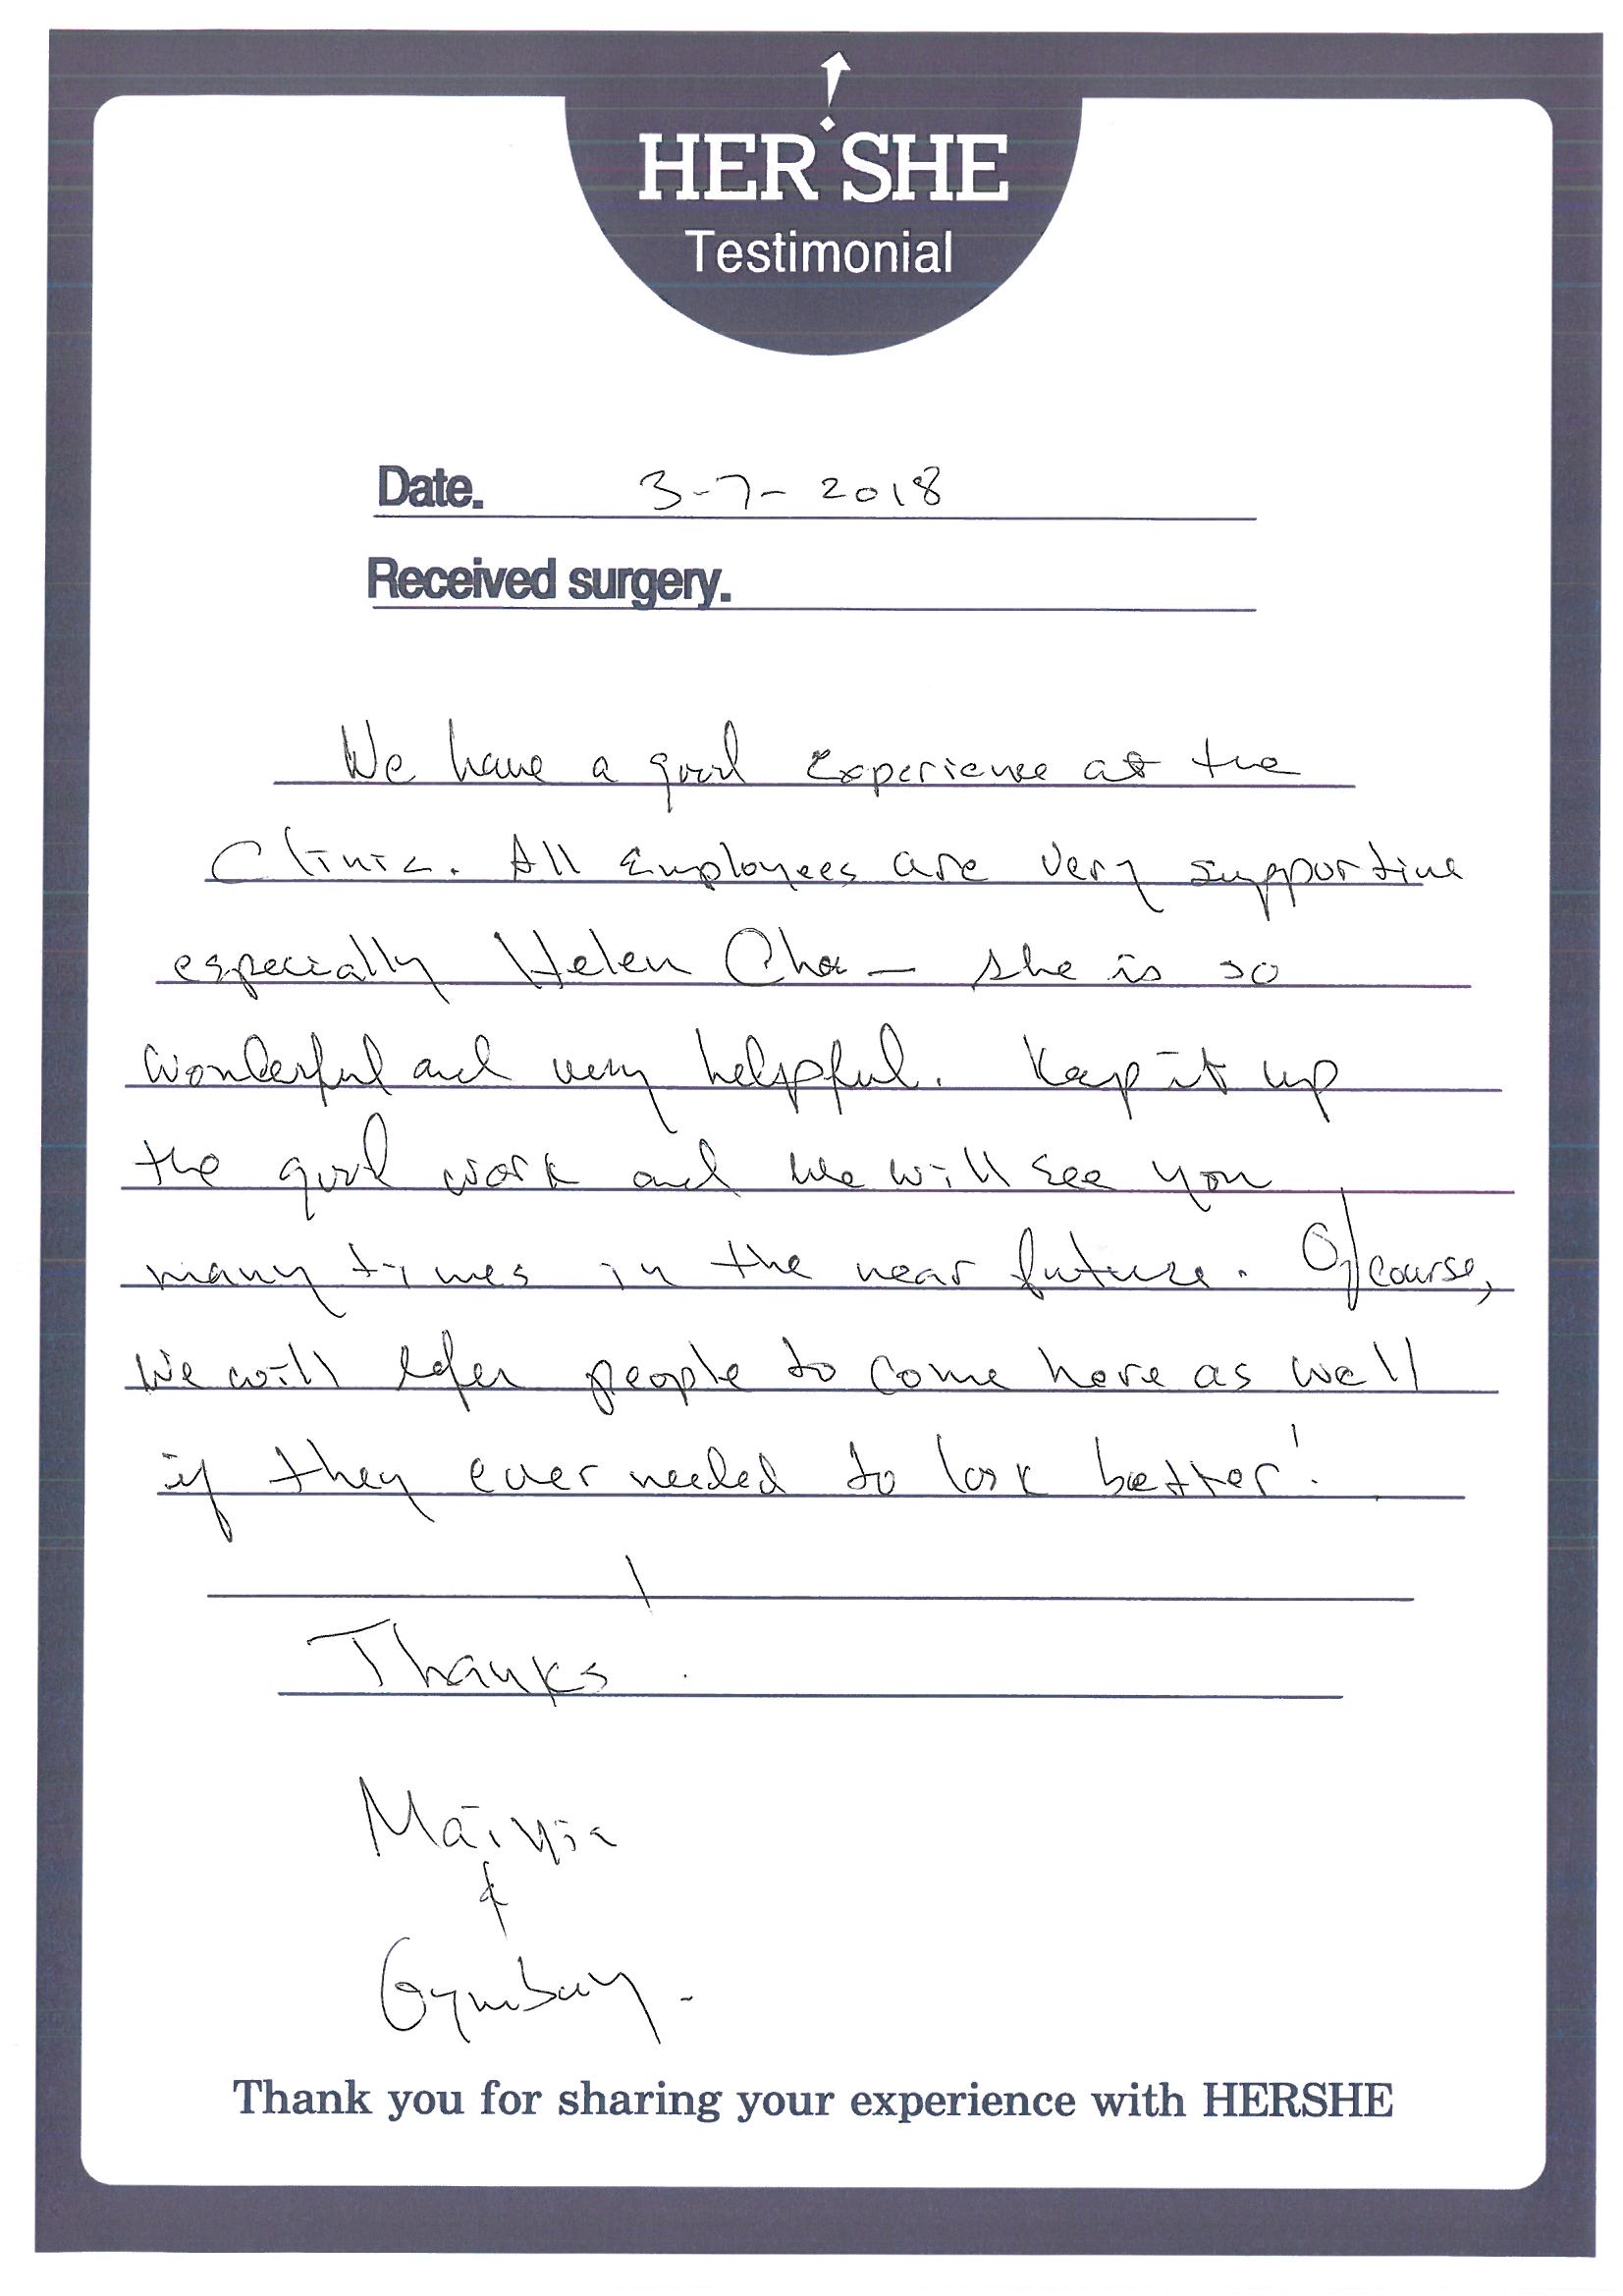 HER SHE
Testimonial
Date. 3-7-2018
Received surgery.
We have a good experience at the
Clinic. All Employees are very supportive
especially Helen Cha - she is so
wonderful and very helpful. Keep it up
the good work and we will see you
many times in the near future. Of course,
We will refer people to come here as well
if they ever needed to look better!
Thanks
&
Thank you for sharing your experience with HERSHE